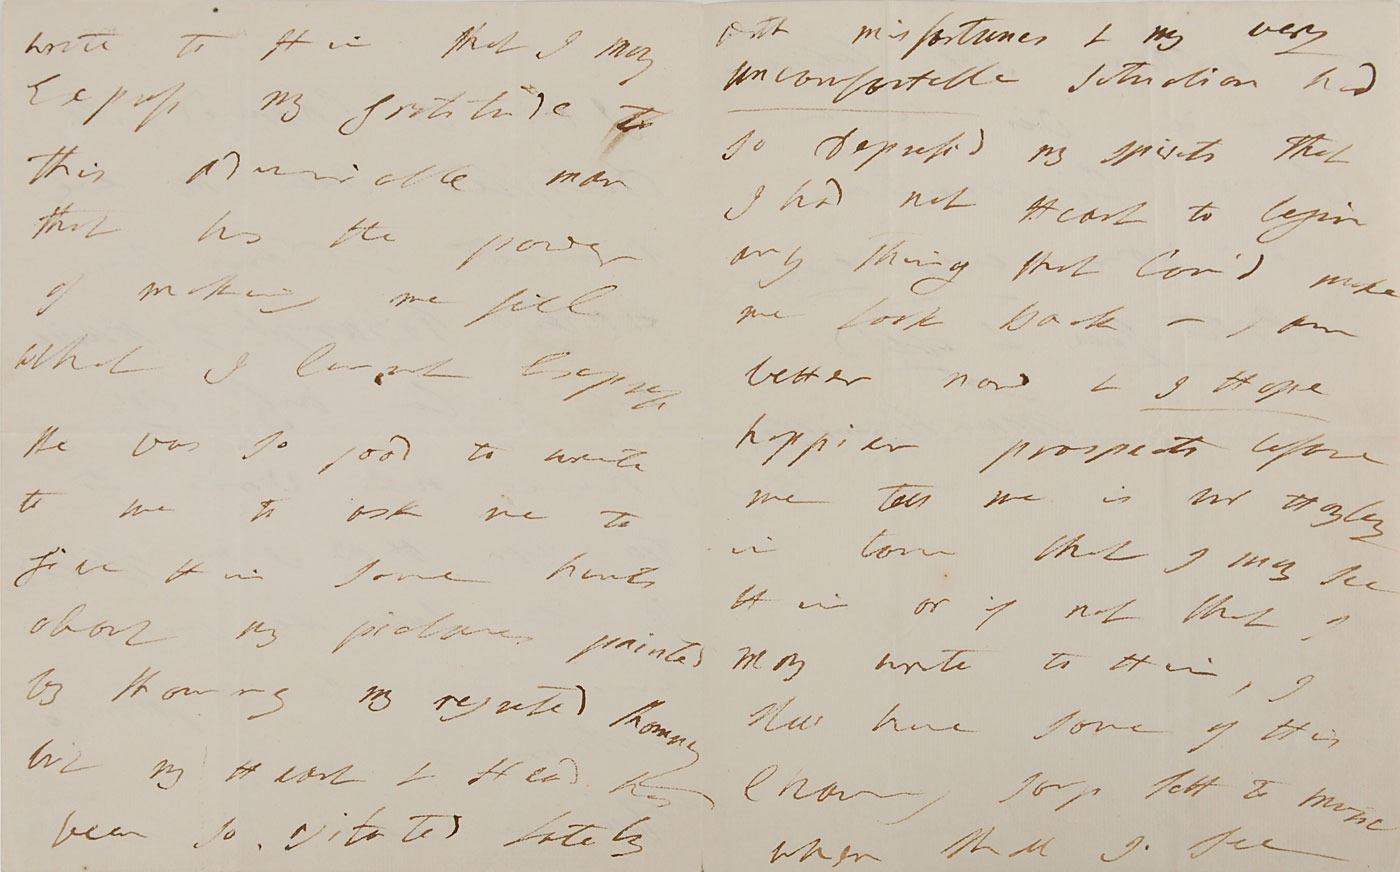 write to Him that I may
Express my gratitude to
this admirable man
that has the power
of making me feel
what I cannot Express
He was so good to write
to me to ask me to
give Him some hints
about my pictures painted
by my regreted Romney
but my Heart & Head has
been so agitated lately
with misfortunes & my very
uncomfortable situation had
so depressed my spirits that
I had not Heart to begin
any thing that Cou'd make
me look back – I am
better now & I Hope
happier prospects before
me tell me is Mr Hayley
in town that I may see
Him or if not that I
may write to Him, I
shall have some of His
charming songs sett to music
when shall I see